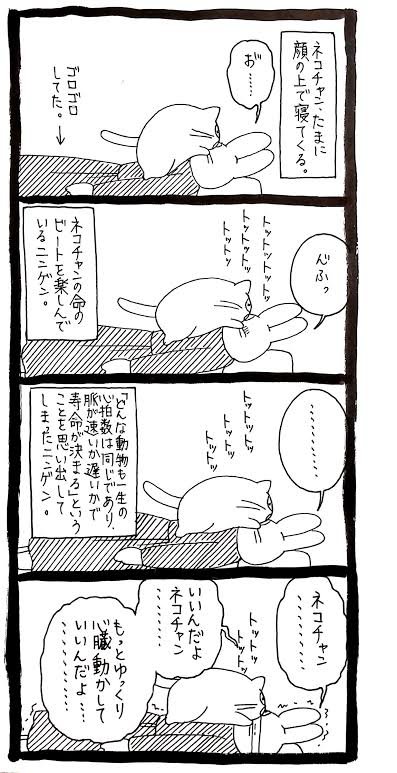 ネコチャン、たまに
顔の上で寝てくる。
お゛……
ゴロゴロ
してた。→
んふっ
トットットットッ
トットットッ
トットッ
ネコチャンの命の
ビートを楽しんで
いるニンゲン。
…………
トットットッ
トットッ
トットッ
「どんな動物も一生の
心拍数は同じであり、
脈が速いか遅いかで
寿命が決まる」という
ことを思い出して
しまったニンゲン。
ネコチャン
…………
トットットッ
トットッ
いいんだよ
ネコチャン
…………
もっとゆっくり
心臓動かして
いいんだよ……
…………